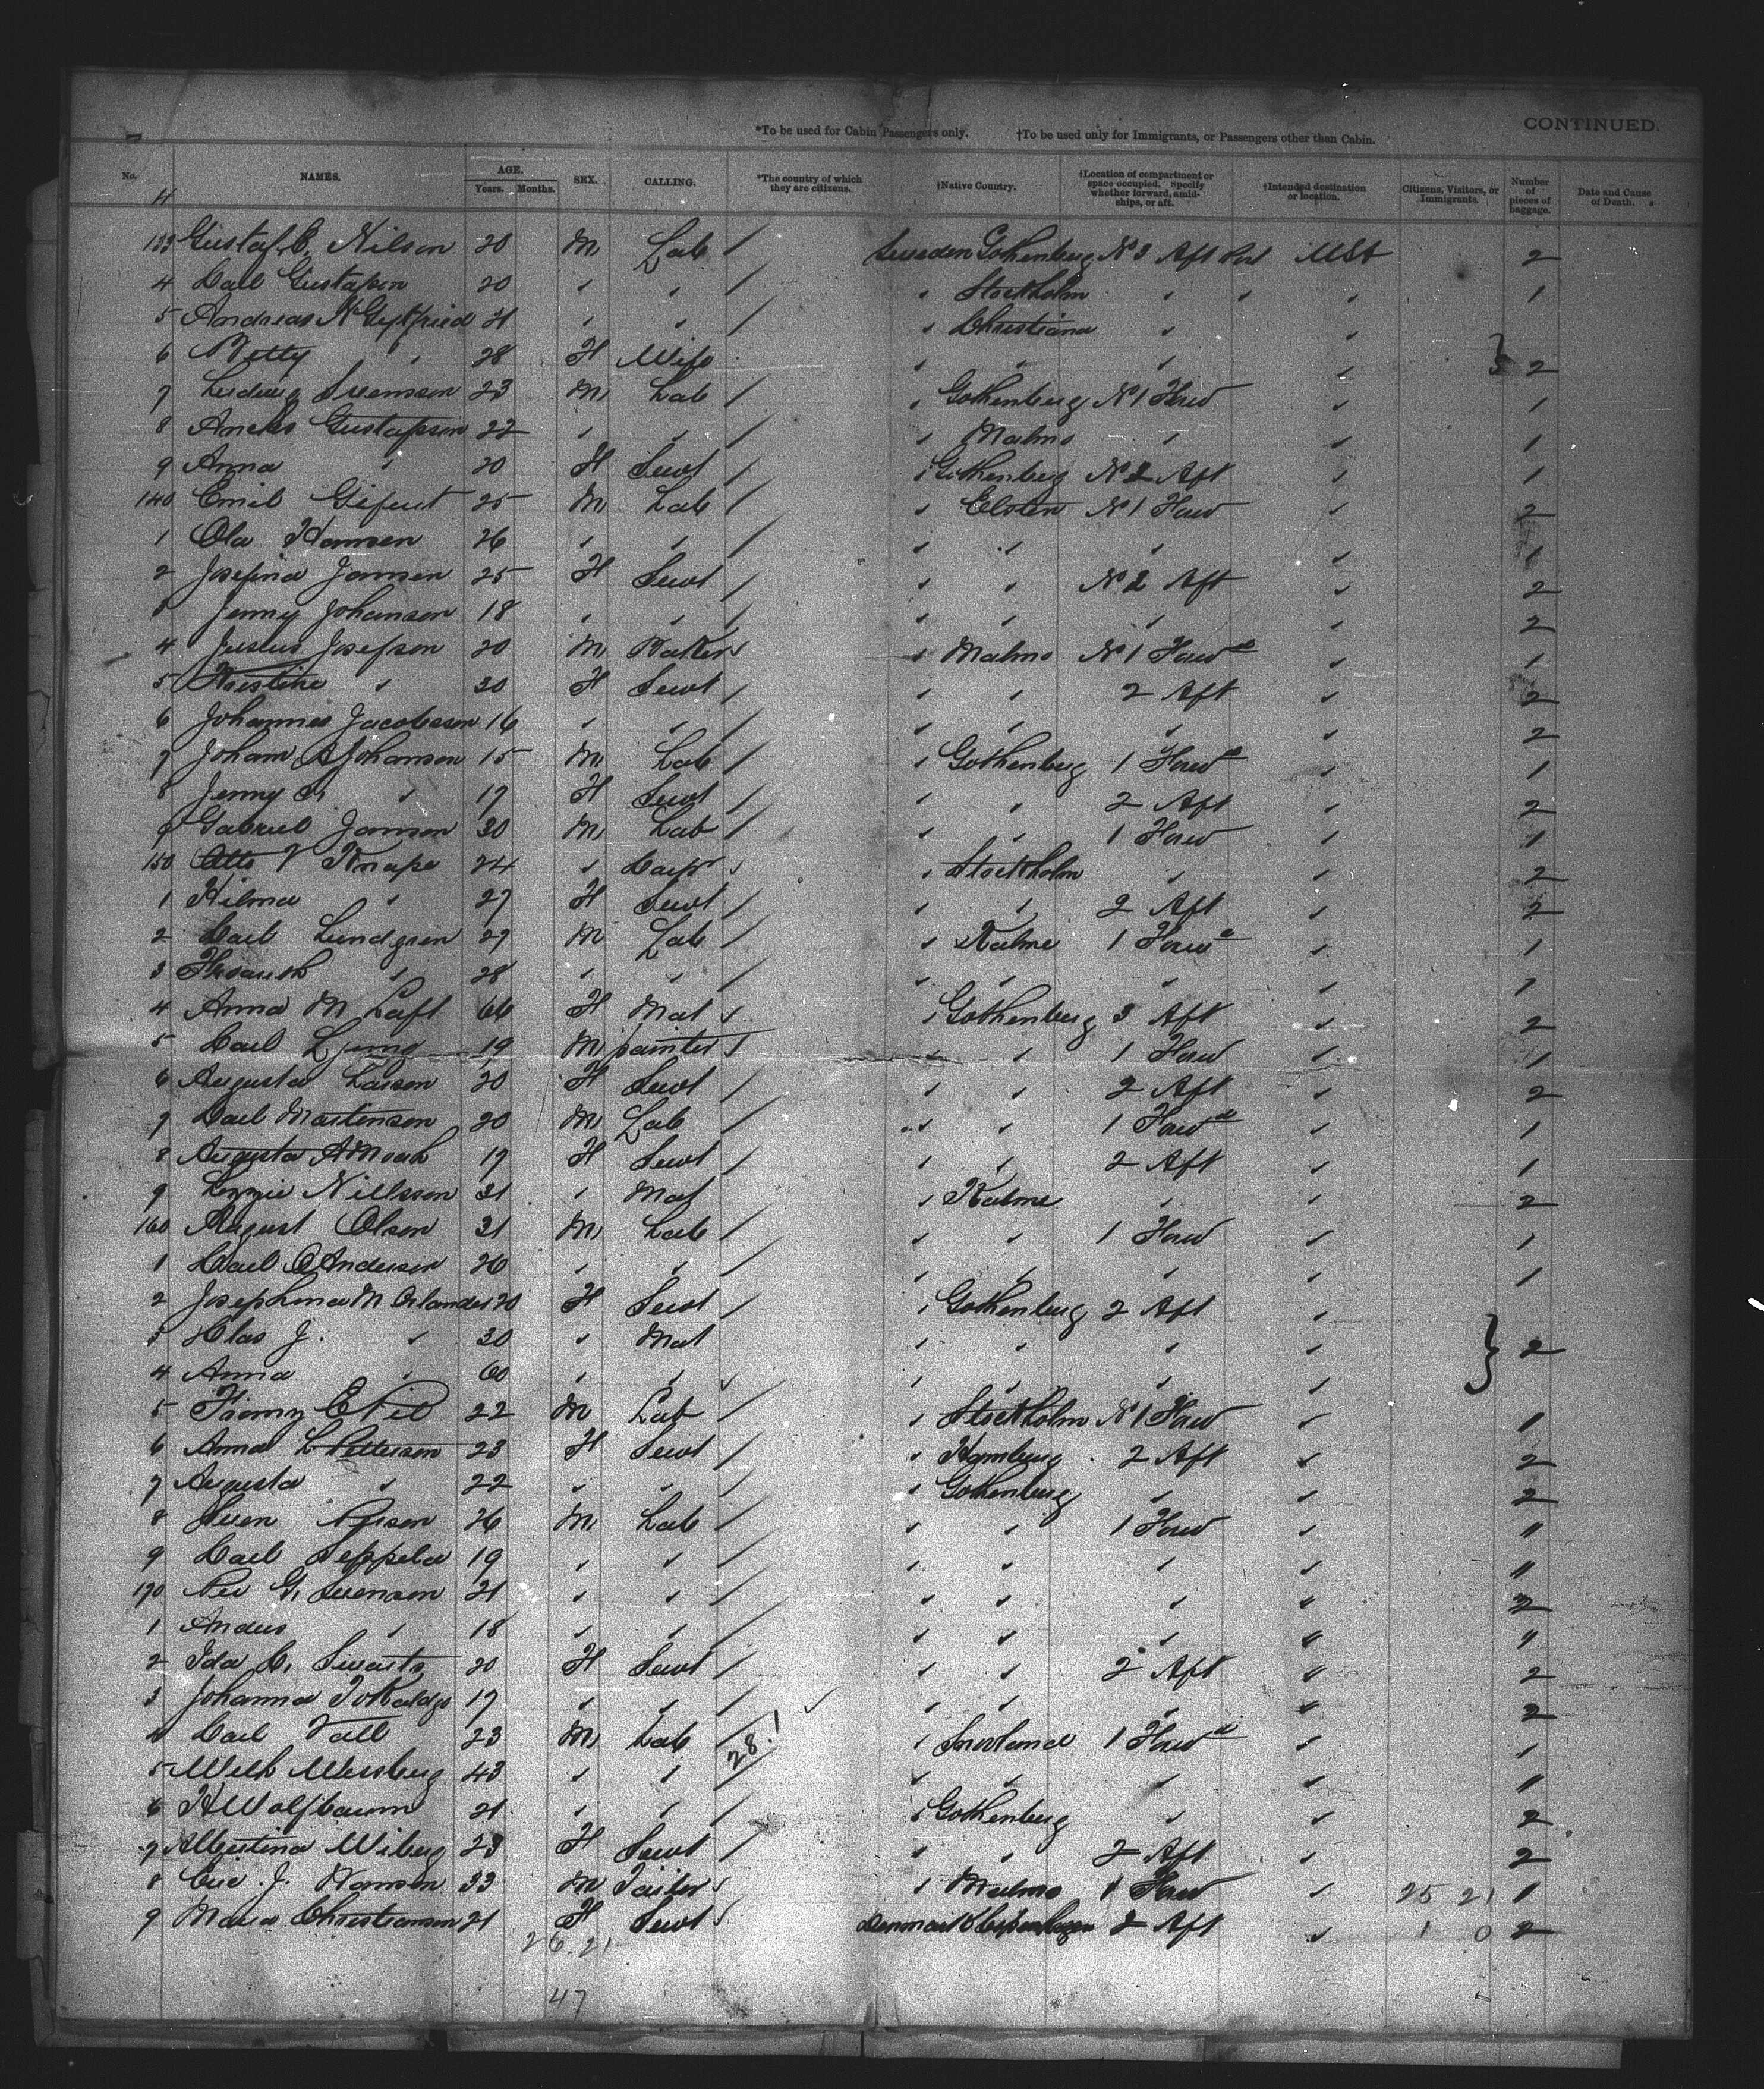 *To be used for Cabin Passengers only. †To be used only for Immigrants, or Passengers other than Cabin. CONTINUED.
No. NAMES. AGE. Years. Months. SEX. CALLING. *The country of which they are citizens. †Native Country. †Location of compartment or space occupied. Specify whether forward, amidships, or aft. †Intended destination or location. Citizens, Visitors, or Immigrants. Number of pieces of baggage. Date and Cause of Death.
4
133 Gustaf C. Nilson 20 M Lab / Sweden Gothenberg No 3 Aft USA 2
4 Carl Gustafson 20 " " / " Stockholm " " " 1
5 Andreas N 21 " " / " Christiana " "
6 Betty " 28 F Wife " " " " } 2
7 Ludwig Svensson 23 M Lab / " Gothenberg No 1 Forw " 1
8 Gustafsson 22 " " / " Malmo " " 1
9 Anna " 20 F Servt / " Gothenberg No 2 Aft " 1
140 Emil 25 M Lab / " No 1 Forw " 2
1 Ola Hansen 26 " " / " " " " 1
2 Josefina Jansen 25 F Servt / " " No 2 Aft " 2
3 Jenny Johanson 18 " " / " " " " 2
4 Justus Josefson 20 M Baker " Malmo No 1 Forwd " 1
5 Kristine " 30 F Servt / " " 2 Aft " 2
6 Johannes Jacobsson 16 " " / " " " " 2
7 Johan A Johanson 15 M Lab / " Gothenberg 1 Forwd " 1
8 Jenny " 17 F Servt / " " 2 Aft " 2
9 Gabriel Janson 30 M Lab / " " 1 Forw " 1
150 Otto V Knape 24 " Carpr " Stockholm " " 2
1 Hilma " 27 F Servt / " " 2 Aft " 2
2 Carl Lundgren 27 M Lab / " Kalme 1 Forwd " 1
3 " 28 " " / " " " " 1
4 Anna M Laft 66 F Mat " Gothenberg 3 Aft " 2
5 Carl 19 M painter " " 1 Forw " 1
6 Augusta Larson 20 F Servt / " " 2 Aft " 2
7 Carl Martenson 20 M Lab / " " 1 Forwd " 1
8 Augusta A 17 F Servt / " " 2 Aft " 1
9 Lizzie Nillsson 31 " Mat " Kalme " " 2
160 August Olson 31 M Lab / " " 1 Forw " 1
1 Carl Anderson 26 " " / " " " " 1
2 Josephina M Orlander 20 F Servt / " Gothenberg 2 Aft "
3 Clas J. " 30 " Mat " " " " } 2
4 Anna " 60 " " " " " "
5 22 M Lab / " Stockholm No 1 Forw " 1
6 Anna L Petterson 23 F Servt / " Hamburg 2 Aft " 2
7 Augusta " 22 " " / " Gothenberg " " 2
8 Sven 26 M Lab / " " 1 Forw " "
9 Carl Seppela 19 " " / " " " " "
170 Per G. Svenson 21 " " / " " " " 2
1 Andus " 18 " " / " " " " "
2 Ida C. Swarts 20 F Servt / " " 2 Aft " 2
3 Johanna 17 " " / " " " " 2
4 Carl Vall 23 M Lab / " 1 Forwd " 1
28 1
5 43 " " / " " " " "
6 H Wolfbaum 21 " " / " Gothenberg " " 2
7 Albertina Wiberg 23 F Servt / " " 2 Aft " 2
8 Eric J. Hanson 33 M Tailor " Malmo 1 Forw " 25 21 1
9 Maria Christianson 21 F Servt Denmark Copenhagen 2 Aft " 1 0 2
26. 21
47